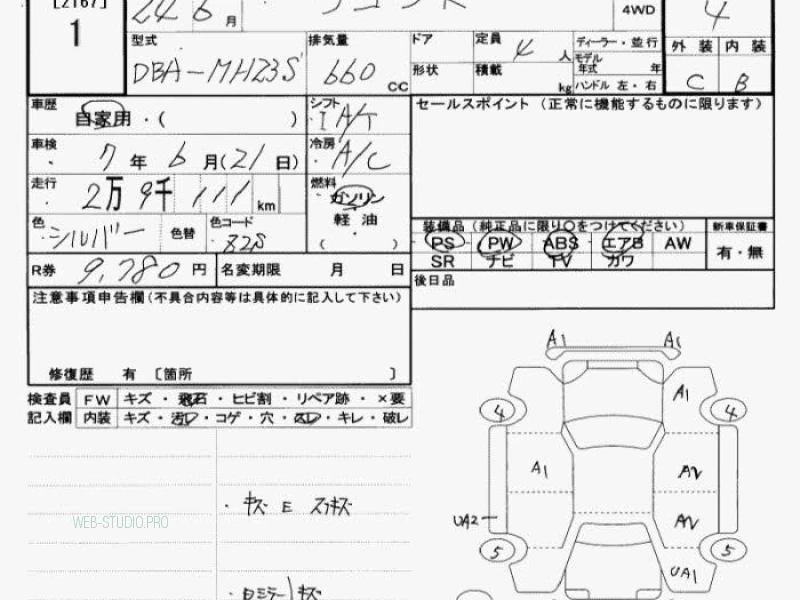 [2167]
1
24 6 月
4WD
4
型式
DBA-MH23S
排気量
660 CC
ドア
形状
定員 4 人
積載 kg
ディーラー・並行
モデル年式 年
ハンドル 左・右
外装 内装
C B
車歴 自家用・( )
シフト I A/T
セールスポイント (正常に機能するものに限ります)
車検 7 年 6 月(21 日)
冷房 A/C
走行 2万9千111 km
燃料 ガソリン
軽油
( )
色 シルバー 色替
色コード Z2S
装備品(純正品に限り○をつけてください)
新車保証書
PS PW ABS エアB AW
有・無
SR ナビ TV カワ
R券 9,780 円 名変期限 月 日
後日品
注意事項申告欄(不具合内容等は具体的に記入して下さい)
修復歴 有 〔箇所 〕
検査員 FW キズ・飛石・ヒビ割・リペア跡・×要
記入欄 内装 キズ・汚レ・コゲ・穴・スレ・キレ・破レ
A1
A1
A1
4
4
A1
AV
UA2
AV
5
5
UA1
WEB-STUDIO.PRO